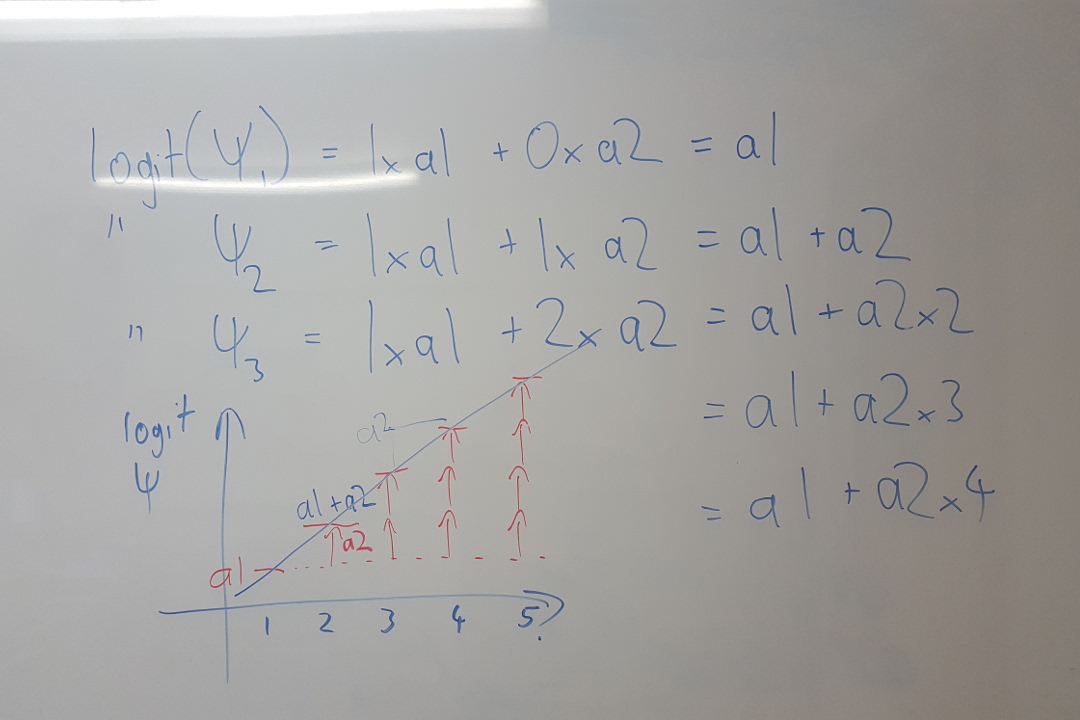 logit(Ψ₁) = 1 x a1 + 0 x a2 = a1
" Ψ₂ = 1 x a1 + 1 x a2 = a1 + a2
" Ψ₃ = 1 x a1 + 2 x a2 = a1 + a2 x 2
= a1 + a2 x 3
= a1 + a2 x 4
logit
Ψ
a2
a1 + a2
a2
a1
1 2 3 4 5?